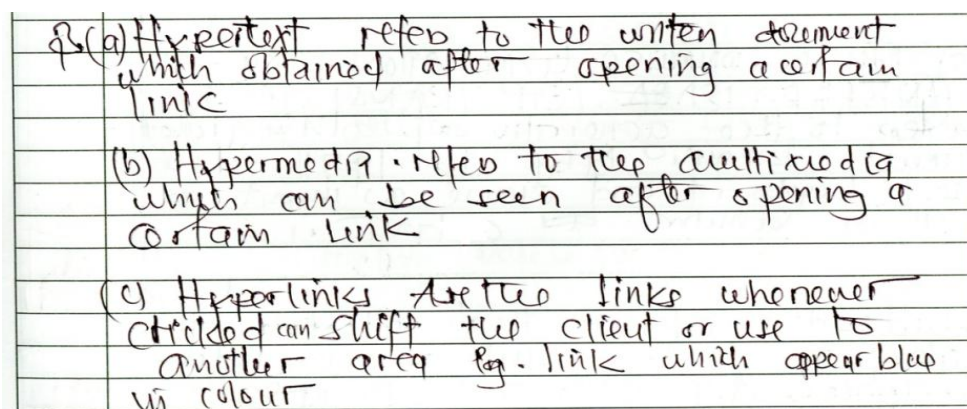 (a) Hypertext refers to the written document
which obtained after opening a certain
link
(b) Hypermedia. refers to the multimedia
which can be seen after opening a
certain link
(c) Hyperlinks Are the links whenever
clicked can shift the client or use to
another area eg. link which appear blue
in colour